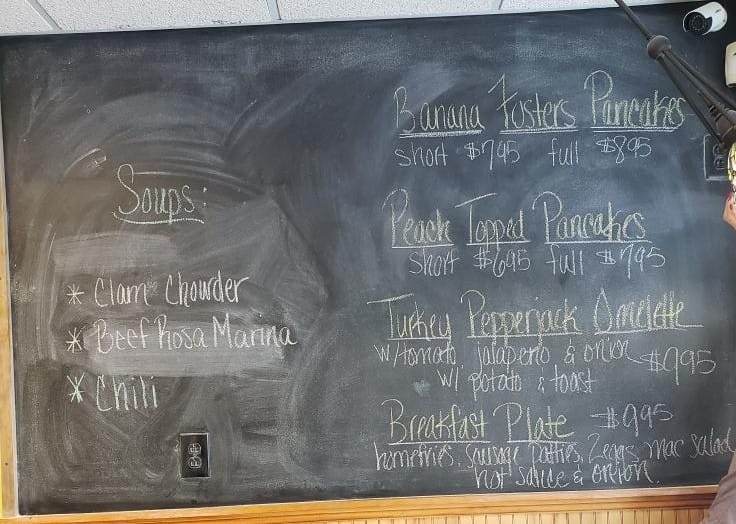 Soups:
* Clam Chowder
* Beef Rosa Marina
* Chili
Banana Fosters Pancakes
short $795 full $895
Peach Topped Pancakes
short $695 full $795
Turkey Pepperjack Omelette
w/tomato jalapeno & onion $995
w/ potato & toast
Breakfast Plate $995
homefries, Sausage Patties, 2eggs, mac salad
hot sauce & onion.